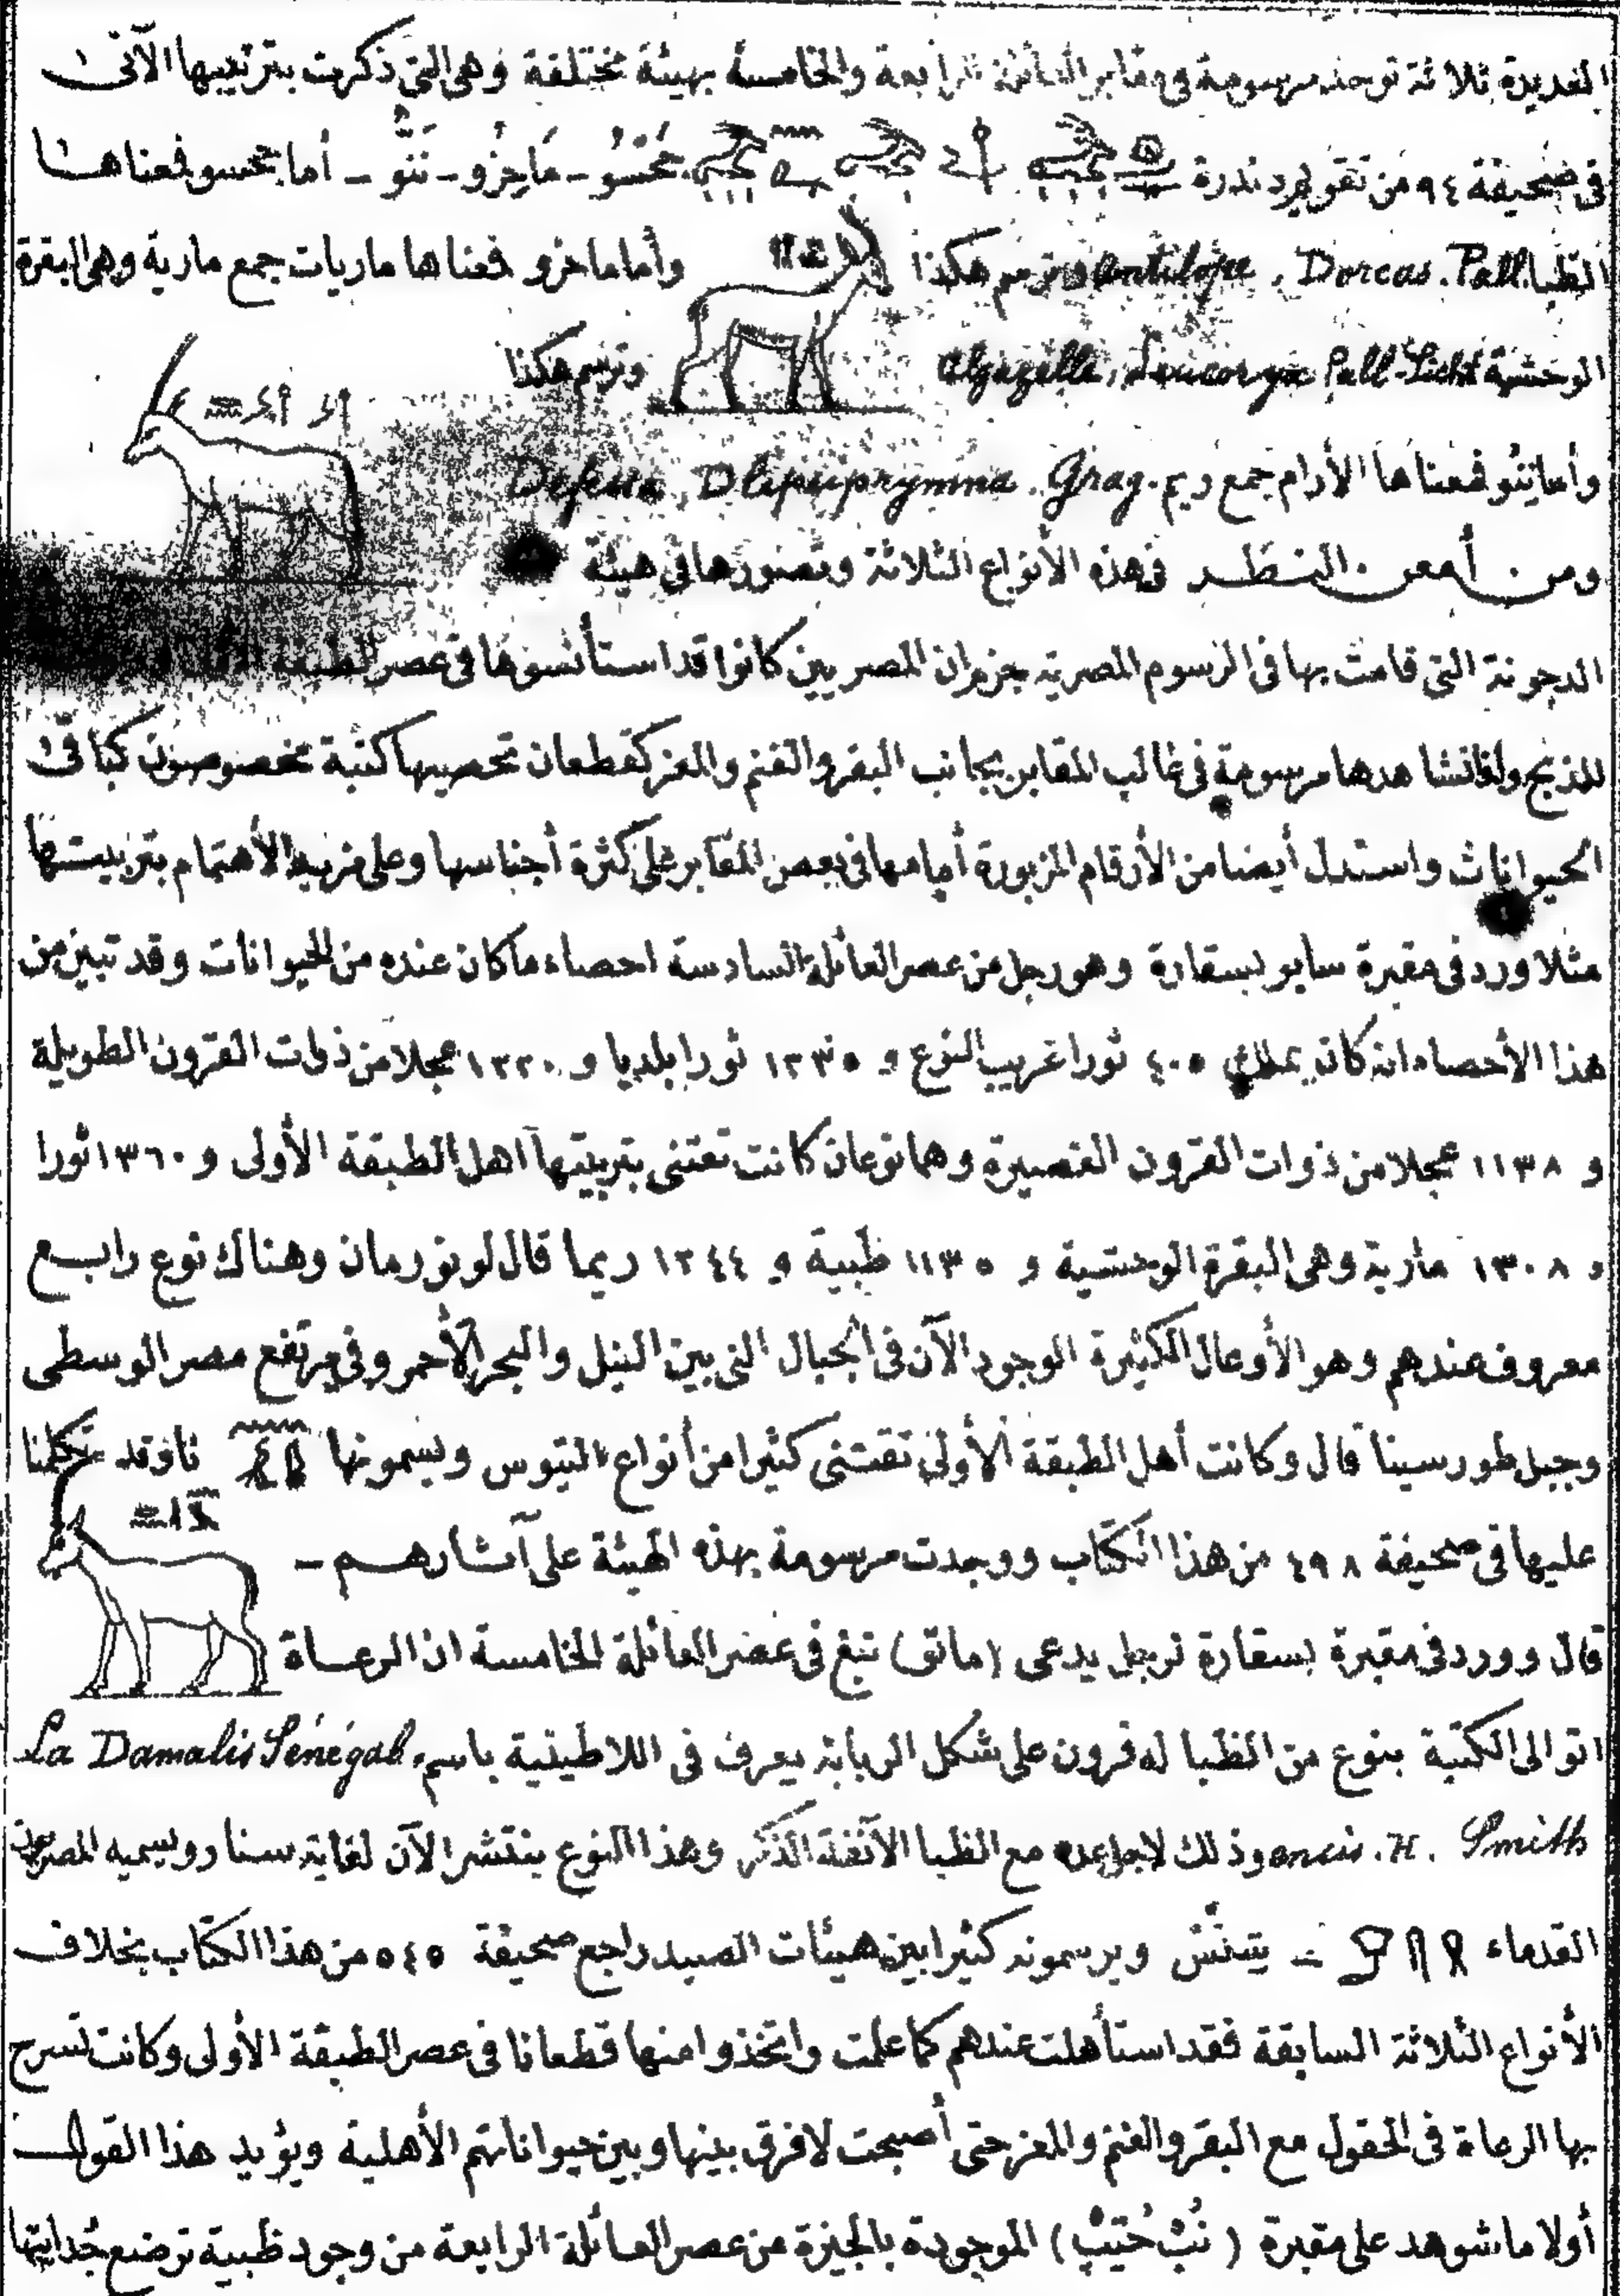 العديدة ثلاثة توجد مرسومة فى مقابر العائلة الرابعة والخامسة بهيئة مختلفة وهى التى ذكرت بترتيبها الآتى
فى صحيفة ٩٤ من تقويم دندرة محسو - ماخرو - ننو - أما محسو فمعناها
الظبا Antilope. Dorcas. Pall وترسم هكذا وأما ماخرو فمعناها ماريات جمع مارية وهى البقرة
الوحشية algazelle, Leucoryx Pall-Licht وترسم هكذا
وأما ننو فمعناها الأرام جمع ريم. Defassa. Grag.
ومن أمعن النظر فى هذه الأنواع الثلاثة وتصورها فى هيئة
الدجونة التى قامت بها فى الرسوم المصرية جزم ان المصريين كانوا قد استأنسوها فى عصر الطبقة
للذبح ولذا نشاهدها مرسومة فى غالب المقابر بجانب البقر والغنم والمعز كقطعان تحصيها كتبة مخصوصون كباقى
الحيوانات واستدل أيضا من الأرقام المزبورة أمامها فى بعض المقابر على كثرة أجناسها وعلى مزيد الأهتمام بتربيتها
مثلا ورد فى مقبرة سابو بسقارة وهو رجل من عصر العائلة السادسة احصاء ما كان عنده من الحيوانات وقد تبين من
هذا الأحصاء انه كان يملك ٤٠٥ ثورا غريب النوع و ١٢٣٥ ثورا بلديا و ١٢٢٠ عجلا من ذوات القرون الطويلة
و ١١٣٨ عجلا من ذوات القرون القصيرة وهما نوعان كانت تعتنى بتربيتها اهل الطبقة الأولى و ١٣٦٠ ثورا
و ١٣٠٨ مارية وهى البقرة الوحشية و ١١٣٥ ظبية و ١٢٤٤ ريما قال لونورمان وهناك نوع رابع
معروف عندهم وهو الأوعال الكثيرة الوجود الآن فى الجبال التى بين النيل والبحر الأحمر وفى مرتفع مصر الوسطى
وجبل طور سينا قال وكانت أهل الطبقة الأولى تقتنى كثيرا من أنواع التيوس ويسمونها ناو قد تكلمنا
عليها فى صحيفة ٤٩٨ من هذا الكتاب ووجدت مرسومة بهذه الهيئة على آثارهم -
قال وورد فى مقبرة بسقارة لرجل يدعى (مانق) نبغ فى عصر العائلة الخامسة ان الرعاة
اتوا الى الكتبة بنوع من الظبا له قرون على شكل الربابة يعرف فى اللاطينية باسم La Damalis Sénégal
encis. H. Smith وذلك لاجل عده مع الظبا الآنفة الذكر وهذا النوع ينتشر الآن لغاية سنار ويسميه المصريون
القدماء - يتنش ويرسمونه كثيرا بين هيئات الصيد راجع صحيفة ٥٤٥ من هذا الكتاب بخلاف
الأنواع الثلاثة السابقة فقد استأهلت عندهم كما علمت واتخذوا منها قطعانا فى عصر الطبقة الأولى وكانت تسرح
بها الرعاة فى الحقول مع البقر والغنم والمعز حتى أصبحت لا فرق بينها وبين حيواناتهم الأهلية ويؤيد هذا القول
أولا ما شوهد على مقبرة (نُبْ حُتِپْ) الموجودة بالجيزة من عصر العائلة الرابعة من وجود ظبية ترضع جدايتها